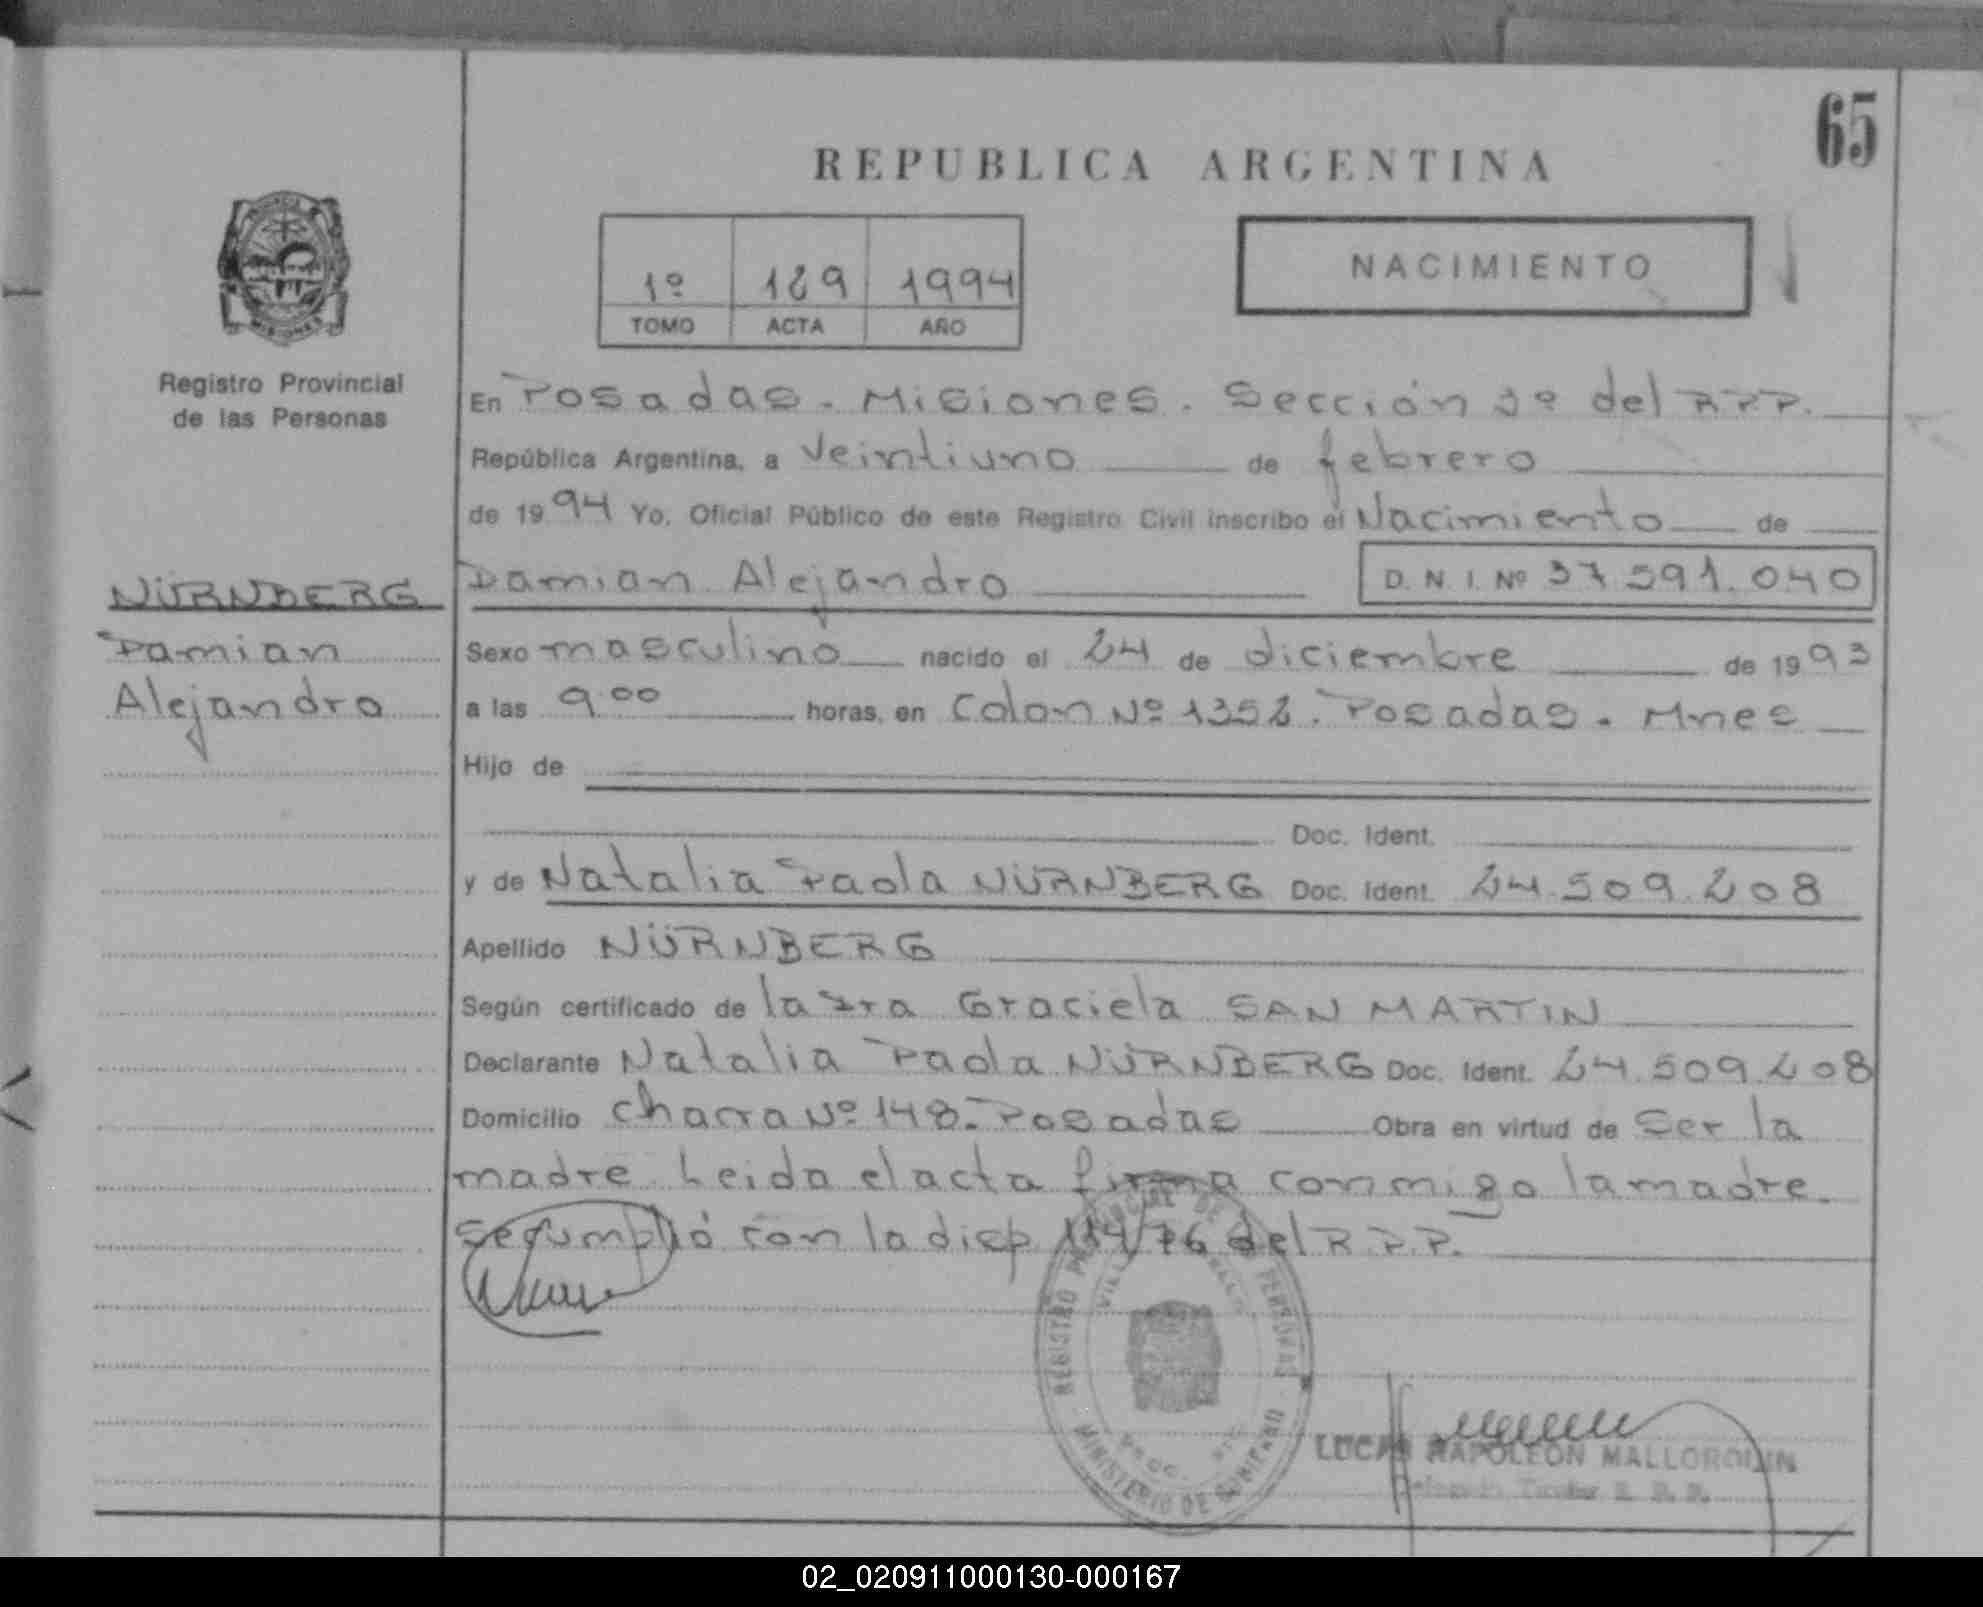 65
REPUBLICA ARGENTINA
1º 129 1994
TOMO ACTA AÑO
NACIMIENTO
PROVINCIA
MISIONES
Registro Provincial
de las Personas
NÜRNBERG
Damian
Alejandro
En Posadas - Misiones. Sección 3º del R.P.P.
República Argentina, a Veintiuno de febrero
de 1994 Yo, Oficial Público de este Registro Civil inscribo el Nacimiento de
Damian Alejandro D.N.I. Nº 37 591.040
Sexo masculino nacido el 24 de diciembre de 1993
a las 9.00 horas, en Colon Nº 1352. Posadas - Mnes
Hijo de
Doc. Ident.
y de Natalia Paola NÜRNBERG Doc. Ident. 24.509.208
Apellido NÜRNBERG
Según certificado de la Dra Graciela SAN MARTIN
Declarante Natalia Paola NÜRNBERG Doc. Ident. 24.509.208
Domicilio Chacra Nº 148 - Posadas Obra en virtud de Ser la
madre. Leida el acta firma conmigo la madre.
Se cumplió con la disp 114/76 del R.P.P.
REGISTRO PROVINCIAL DE LAS PERSONAS
MINISTERIO DE GOBIERNO
LUCAS NAPOLEON MALLORQUIN
Delegado Titular R. P. P.
02_020911000130-000167